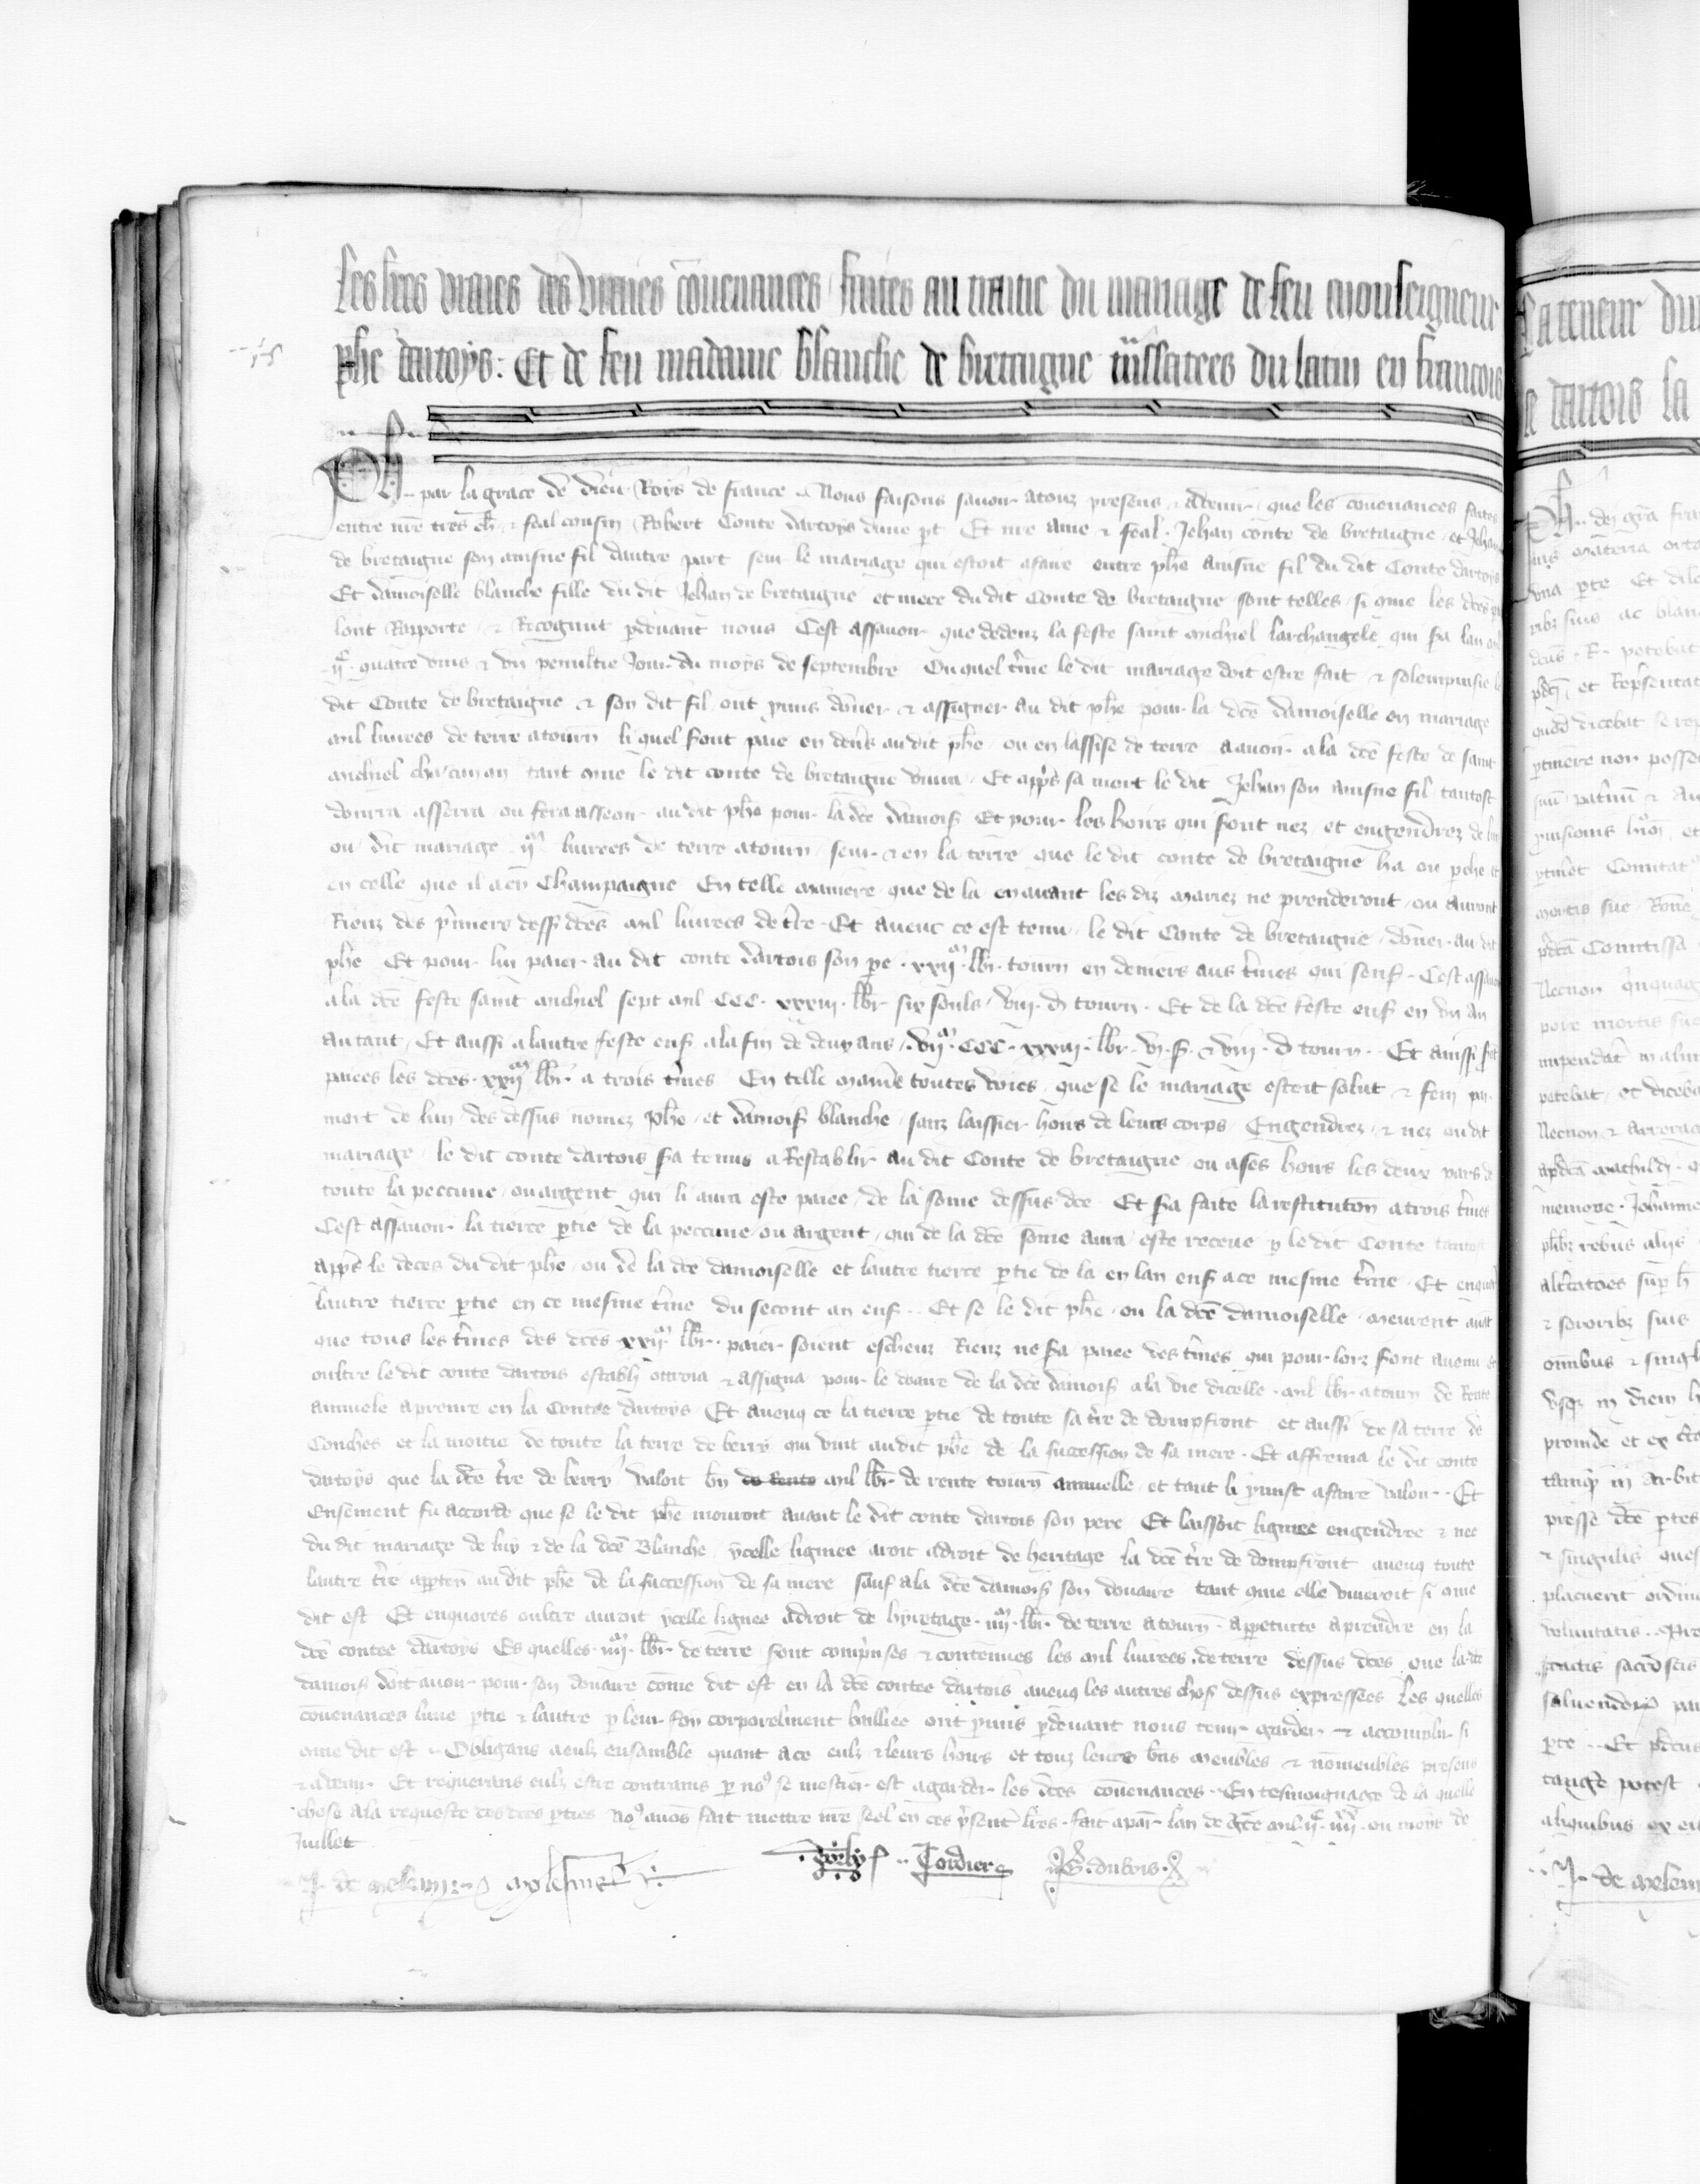 Les lres vraies des vraies couenances faites au traitie du mariage de feu monseigneur
phe dartoys : Et de feu madame blanche de bretaigne trãslatees du latin en francois
Ph .. par la grace de dieu Roys de france .. Nous faisons sauoir atouz presens & auenir que les couenances faites
entre nre tres ch & feal cousin Robert Conte dartoys dune pt Et nre ame & feal Jehan conte de bretaigne et Jehan
de bretaigne son ainsne fil dautre part seur le mariage qui estoit afaire entre phe ainsne fil du dit Conte dartoys
Et damoiselle blanche fille du dit Jehan de bretaigne et niece du dit Conte de bretaigne sont telles si come les dces
lont Raporte & Recognut pdeuant nous Cest assauoir que dedenz la feste saint michiel larchangele qui sa lan mil
ijc quatre vins & vn penultie Jour du moys de septembre Ouquel tme le dit mariage doit estre fait & solempnisie le
dit Conte de bretaigne & son dit fil ont pmis doner & assigner au dit phe pour la dce damoiselle en mariage
mil liurees de terre atourn li quel sont paie en deniers audit phe ou en lassise de terre aauoir ala dce feste de saint
michiel chascun an tant come le dit conte de bretaigne viura Et apps sa mort le dit Jehan son ainsne fil tantost
donrra asserra ou fera asseoir audit phe pour la dce damois Et pour les hoirs qui sont nez et engendrez de
ou dit mariage ijm liurees de terre atourn seur & en la terre que le dit conte de bretaigne ha ou pche et
en celle que il a en Champaigne En telle maniere que de la enauant les diz mariez ne prenderont ou auront
Rienz des pmiers dess dces mil liurees de tre Et auenc ce est tenu le dit Conte de bretaigne doner au dit
phe Et pour lui paier au dit conte dartois son pe xxijm lbr tourn en deniers aus tmes qui senf Cest assauoir
ala dce feste saint michiel sept mil CCC xxxiij lbr six souls viij d tourn Et de la dce feste enf en vn an
autant Et aussi alautre feste enf ala fin de deux ans vijm CCC xxxiij lbr vj s & viij d tourn Et ainssi st
paiees les dces xxijm lbr a trois tmes En telle maniere toutes voies que se le mariage estoit solut & feni par
mort de lun des dessus nomez phe et damois blanche sanz laissier hoirs de leurs corps Engendrez & nez oudit
mariage le dit conte dartois sa tenus aRestablir au dit Conte de bretaigne ou ases hoirs les deux pars de
toute la peccune ou argent qui li aura este paiee de la some dessus dce Et sa faite la restituton a trois tmes
Cest assauoir la tierce ptie de la peccune ou argent qui de la dce some aura este receue p le dit Conte tantost
apps le deces du dit phe ou de la dce damoiselle et lautre tierce ptie de la en lan enf ace mesme tme Et
lautre tierce ptie en ce mesme tme du secont an enf .. Et se le dit phe ou la dce damoiselle meurent auãt
que tous les tmes des dces xxijm lbr paier soient escheuz Rienz ne sa paiee des tmes qui pour lorz sont auenu et
oultre le dit conte dartois establi ottroia & assigna pour le doaire de la dce damois ala vie dicelle mil lbr atourn de Rente
annuele aprenre en la Contee dartoys Et auenq ce la tierce ptie de toute sa tre de dompfront et aussi de sa terre de
Conches et la moitie de toute la terre de berry qui vint audit phe de la succession de sa mere Et afferma le dit conte
dartoys que la dce tre de berry valoit bn de Rente mil lbr de rente tourn annuelle et tant li pmist afaire valoir .. Et
Ensement fu accorde que se le dit phe mouroit auant le dit conte dartois son pere Et laissoit lignee engendree & nee
du dit mariage de luy & de la dce Blanche ycelle lignee aroit adroit de heritage la dce tre de dompfront auenq toute
lautre tre apten au dit phe de la succession de sa mere sauf ala dce damois son douaire tant come elle viueroit si come
dit est Et enquores oultre auroit ycelle lignee adroit de hyretage iiijm lbr de terre atourn apetuite aprendre en la
dce contee dartoys Es quelles iiijm lbr de terre sont comprises & contenues les mil liurees de terre dessus dces que la dce
damois doit auoir pour son douaire come dit est en la dce contee dartois auenq les autres chos dessus expressees Les quelles
couenances lune ptie & lautre p leur foy corporelment bailliee ont pmis pdeuant nous tenir garder & accomplir si
come dit est .. Obligans aculz ensamble quant ace eulz & leurs hoirs et touz leurs bns meubles & nõmeubles presens
& auenir Et requerans eulz estre contrains p nos se mestier est agarder les dces couenances .. En tesmoignage de la quelle
chose ala requeste des dces pties nos auos fait mettre nre seel en ces psent lres fait apar lan de gce mil ijc iiijxx ou moys de
Juillet
J. de melun Cordier G. dubois